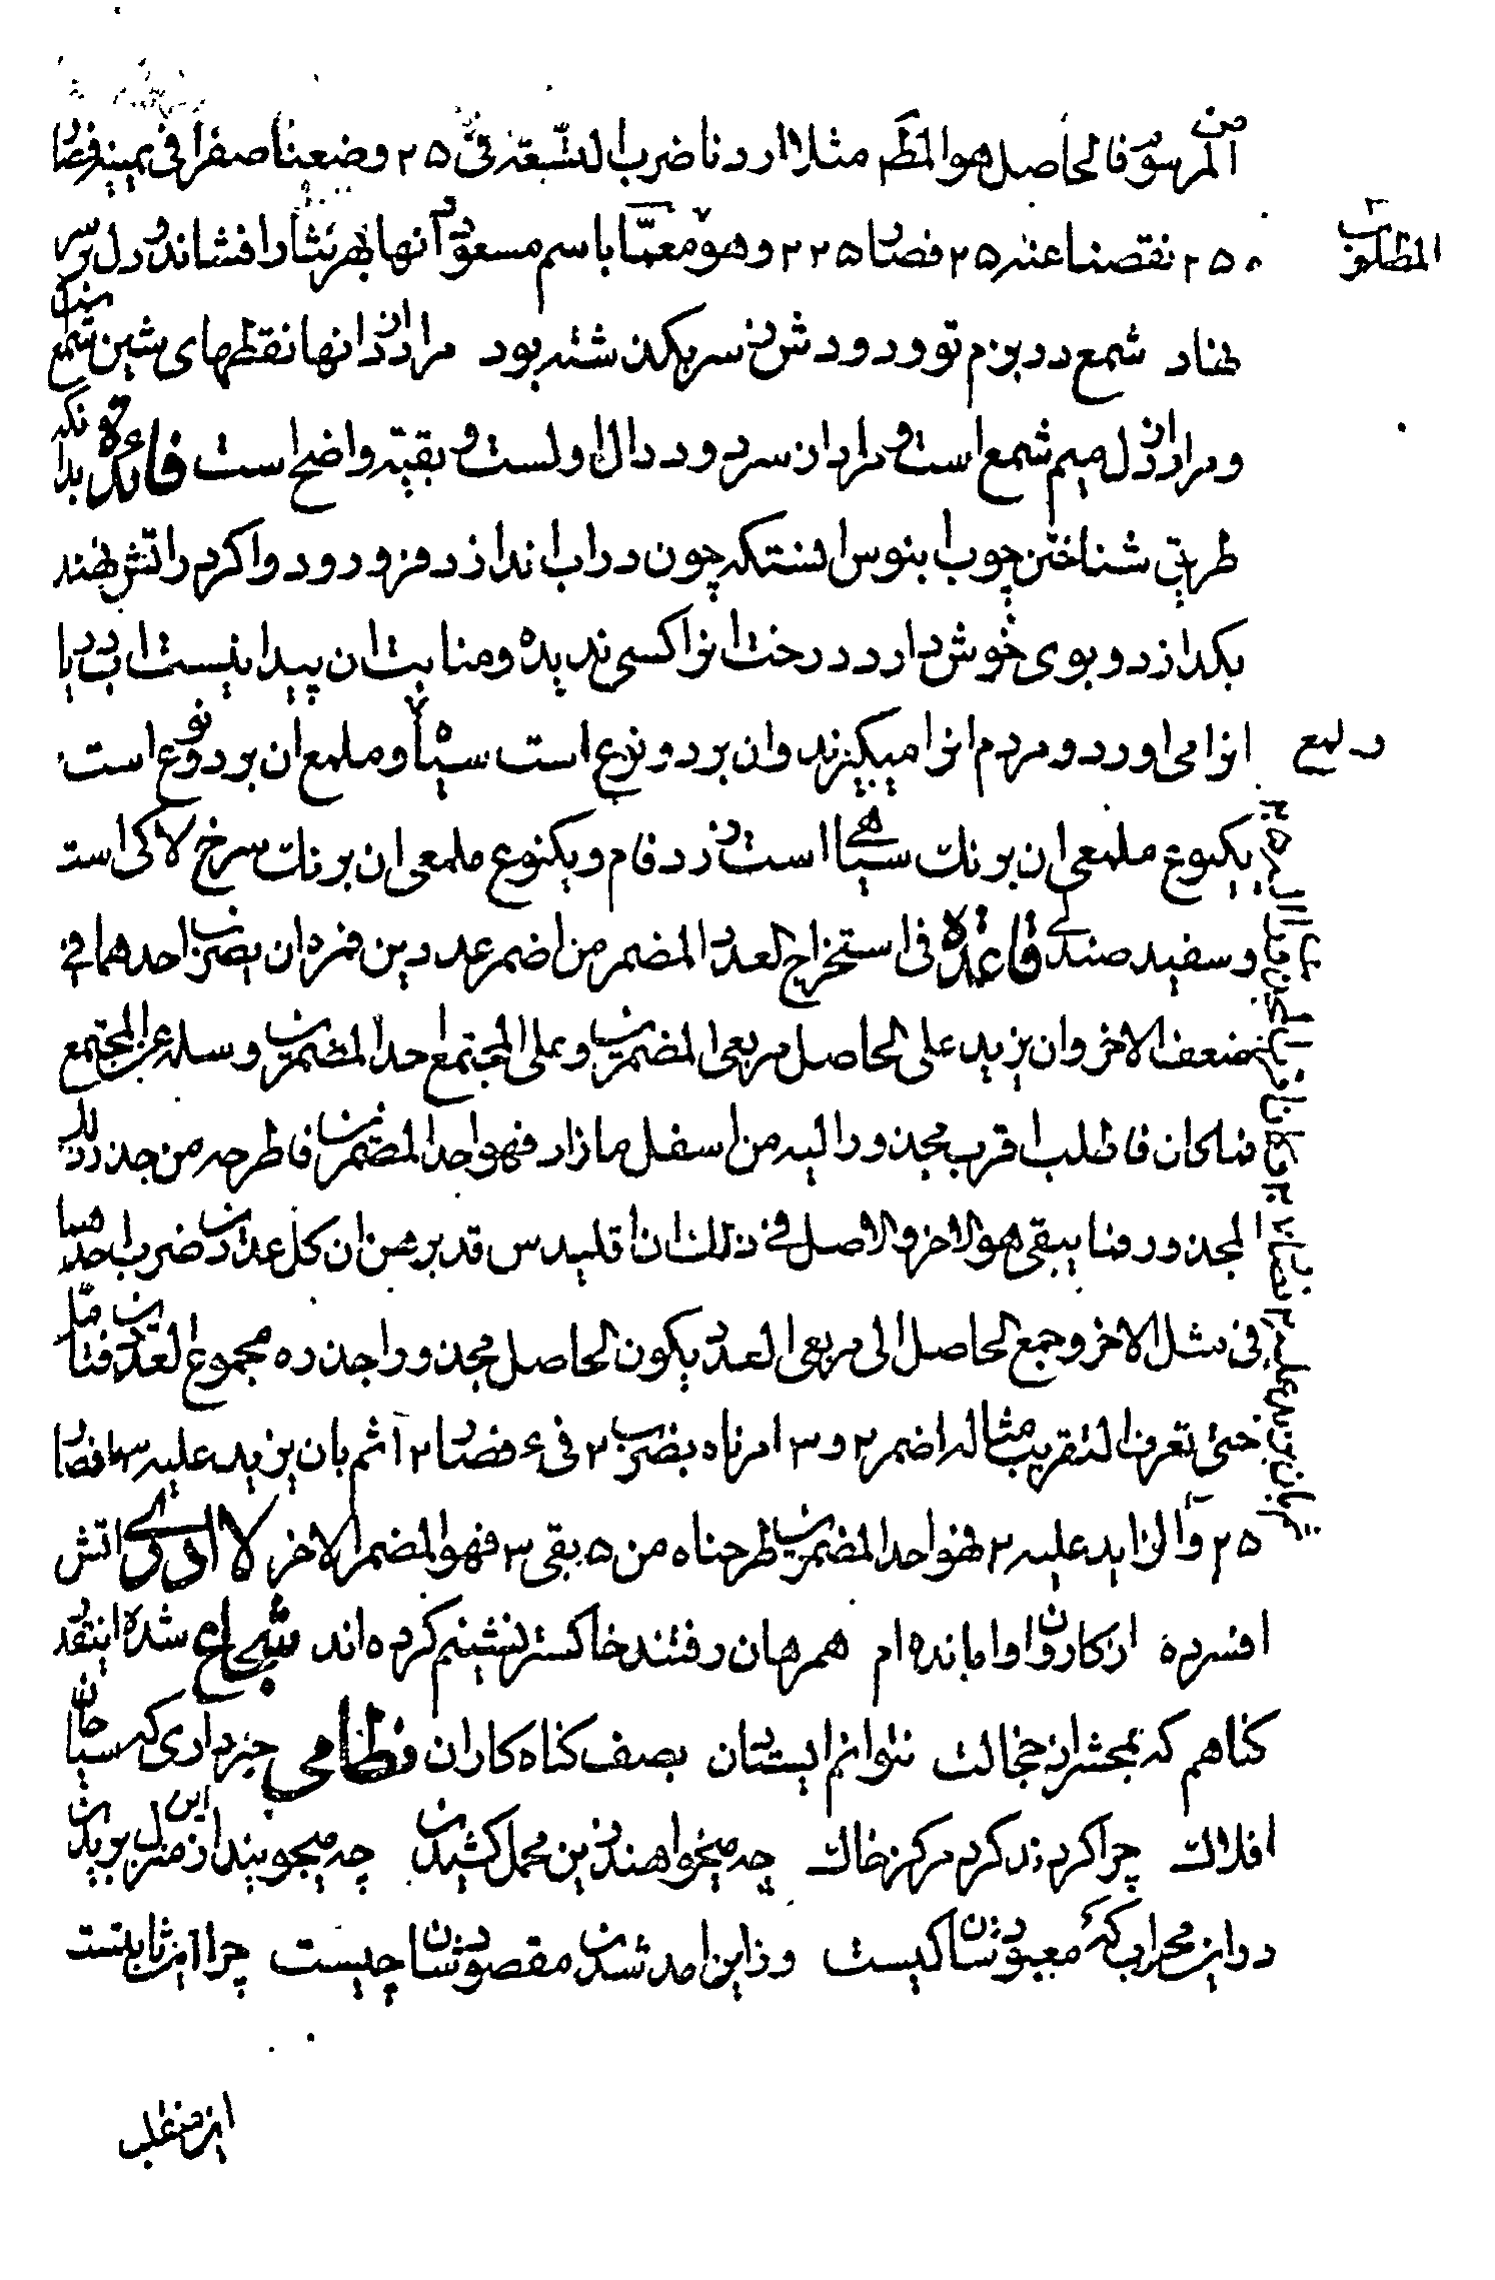 من المرسوم فالحاصل هو المط مثلا اردنا ضرب التسعة فی ۲۵ وضعنا صفرا فی يمينه فصار
۲۵۰ نقصنا عنه ۲۵ فصار ۲۲۵ وهو المطلوب معما باسم مسعود آنها بهر نثار افشاند در دل بر سر
نهاد شمع در بزم تو و رودش ز سر بگذشته بود مراد از دانها نقطهای شین شمع است
و مراد از دل میم شمع است و مراد از سر دود دال اولست و بقیته واضح است فائدة بدانکه
طریق شناختن چوب ابنوس اینستکه چون در اب اندازد فرو رود و اگر در اتش نهند
بکدازد و بوی خوش دارد درخت انرا کسی ندیده و منابت ان پیدا نیست اب دریا
انرا می اورد و مردم انرا میگیرند وان بر دو نوع است سیاه و ملمع و ملمع ان بر دو نوع است
یکنوع ملمعی ان برنک سیاهی است زرد فام و یکنوع ملمعی ان برنک سرخ لاکی است
و سفید صندلی قاعدة فی استخراج العدد المضمر من اضمر عددين فمره ان يضرب احدهما فی
ضعف الاخر وان يزيد علی الحاصل مربعی المضمرين و علی المجتمع احد المضمرين وسله عن المجتمع
فما کان فاطلب اقرب مجذور اليه من اسفل ما زاد فهو احد المضمرين فاطرحه من جذر ذلك
المجذور فما يبقی هو الاخر والاصل فی ذلك ان اقليدس قد برهن ان کل عددين ضرب احدهما
فی مثل الاخر وجمع الحاصل الی مربعی العدد يکون الحاصل مجذورا جذره مجموع العددين فتامل
حتی تعرف التقريب مثاله اضمر ۲ و ۳ امرناه بضرب ۲ فی ۶ فصار ۱۲ ثم بان يزيد عليه ۱۳ فصار
۲۵ والزايد عليه ۲ فهو احد المضمرين طرحناه من ۵ بقی ۳ فهو المضمر الاخر لا ادری اتش
افسرده از کاروان وا مانده ام همرهان رفتند خاکستر نشینم کرده اند شجاع شده اینقدر
کناهم که بمحشر از خجالت نتوانم ایستادن بصف کناه کاران نظامی خبر داری که سیاحان
افلاک چرا کردند کرد مرکز خاک چه میخواهند ازین محمل کشیدن چه میجویند از این منزل بریدن
در این محراب که معبودشان کیست وزین امد شدن مقصودشان چیست چرا این ثابتست
این منقلب